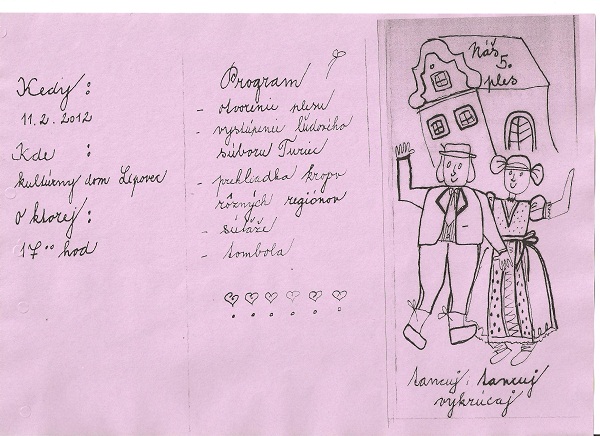 Kedy :
11. 2. 2012
Kde :
kultúrny dom Lipovec
O ktorej :
17 °° hod
Program
- otvorenie plesu
- vystúpenie ľudového
súboru Turiec
- prehliadka krojov
rôznych regiónov
- súťaže
- tombola
Náš
5.
ples
tancuj, tancuj
vykrúcaj